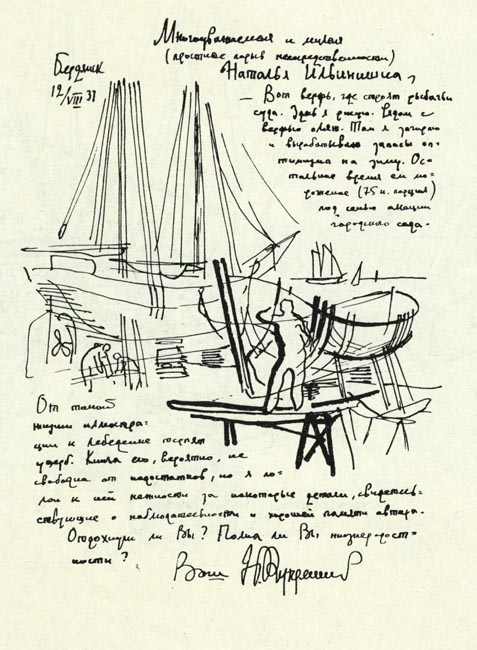 Многоуважаемая и милая
(простите порыв непосредственности)
Наталья Ильинишна,
Бердянск
12/VIII 37
— Вот верфь, где строят рыбачьи
суда. Здесь я рисую. Рядом с
верфью пляж. Там я загораю
и вырабатываю запасы оп-
тимизма на зиму. Ос-
тальное время ем мо-
роженое (75 к. порция)
под сенью акации
городского сада.
От такой
жизни иллюстра-
ции к Лебеденке терпят
ущерб. Книга его, вероятно, не
свободна от недостатков, но я по-
лон к ней нежности за некоторые детали, свидетель-
ствующие о наблюдательности и хорошей памяти автора.
Отдохнули ли Вы? Полна ли Вы жизнерадост-
ности?
Ваш